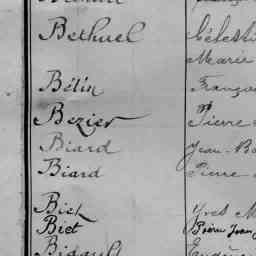 Bethuel Célesti
Marie
Bétin França
Bezier Pierre
Biard Jean-Ba
Biard Pierre
Biet Yves M
Biet Pierre Jean
Bidault Eugène